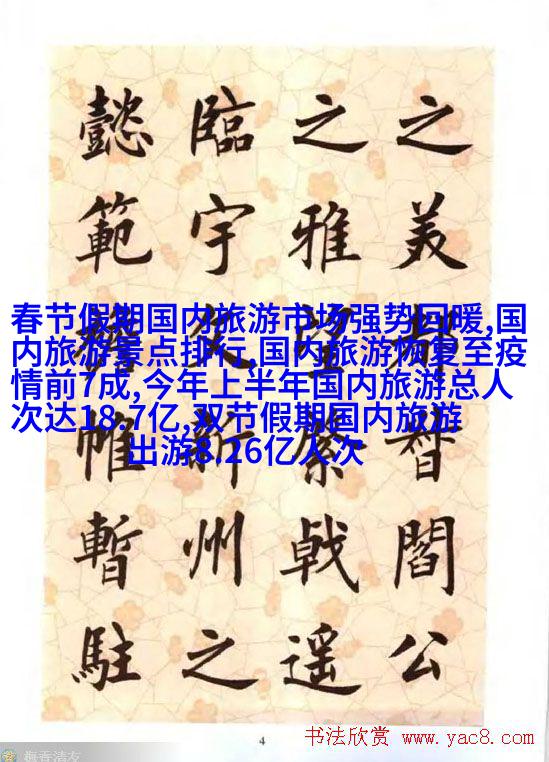 之美督閻公
之雅戟遥
臨宇新州之
懿範帷暫駐
春节假期国内旅游市场强势回暖,国
内旅游景点排行,国内旅游恢复至疫
情前7成,今年上半年国内旅游总人
次达18.7亿,双节假期国内旅游
出游8.26亿人次
4
书法欣赏 www.yac8.com
梅香清友